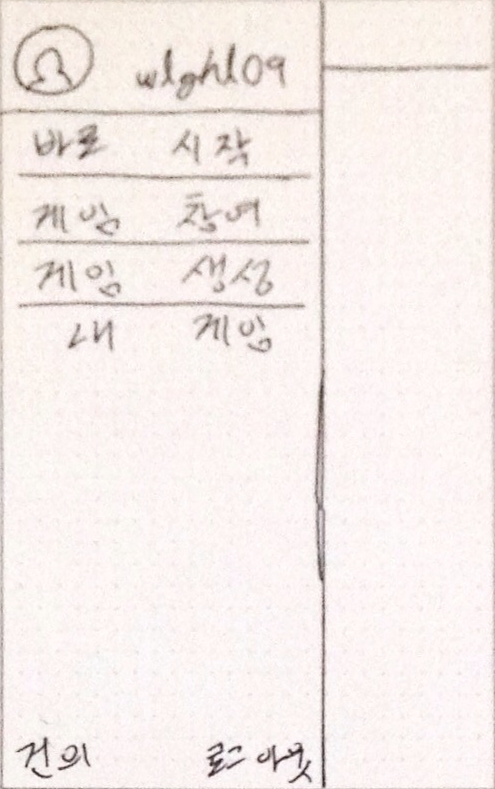 wlghl09
바로 시작
게임 참여
게임 생성
내 게임
건의 로그아웃